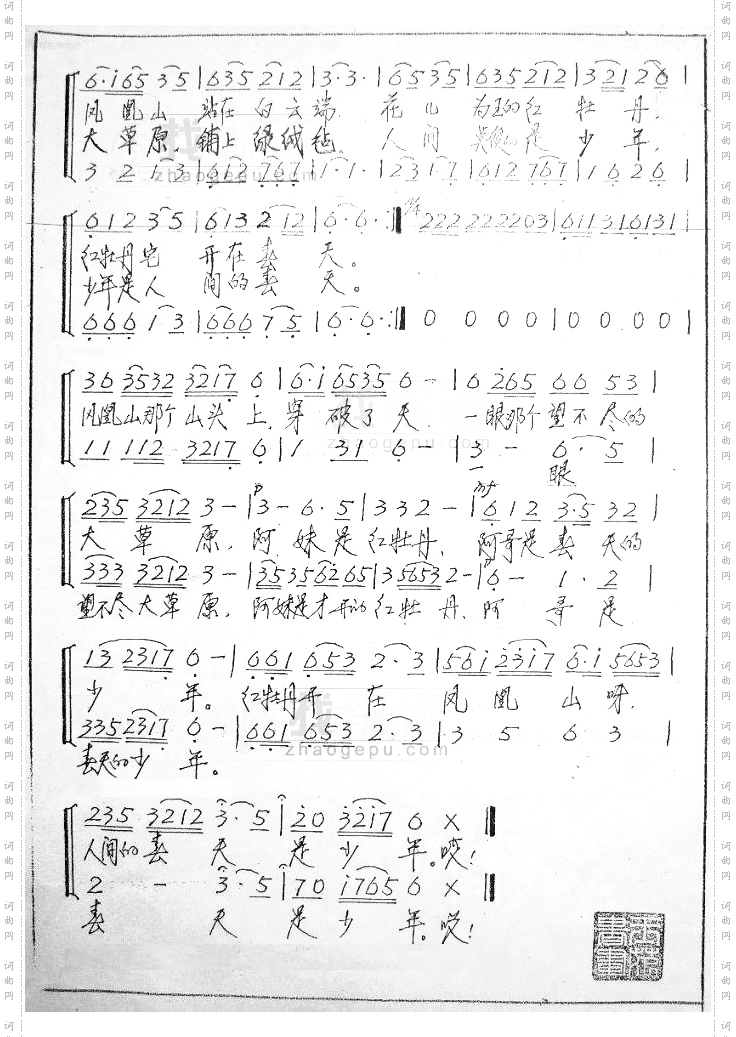 6·i65 35 | 635 212 | 3·3· | 6535 | 635212 | 32126 |
凤凰山 站在 白云端. 花儿 为王的红 牡 丹,
大草原, 铺上 绿绒毯, 人间 英俊的是 少 年,
3 2 1 3 | 612 767 | 1·1· | 231·7 | 612 767 | 1626 |
zhaogepu.com
612 35 | 613 212 | 6·6· :‖ 222 222 2203 | 6113 16131 |
红牡丹它 开在春 天。
少年是人 间的春 天。
666 1 3 | 666 7·5 | 6·6· :‖ 0 0 0 0 | 0 0 0 0 |
36 3532 3217 6 | 6·i 6535 6 - | 6 265 66 53 |
凤凰山那个 山头 上, 穿 破了 天. 一眼那个 望不 尽的
11 112 3217 6 | 1 31 6 - | 3 - 6· 5 |
zhaogepu.com
眼
235 3212 3 - | 3 - 6·5 | 332 - | 612 3·5 32 |
p
mf
大 草 原, 阿 妹 是 红牡丹, 阿哥是 春 天的
333 3212 3 - | 35 356265 | 3 5653 2 - | 6 - 1· 2 |
望不尽 大草 原, 阿妹是才开的 红牡 丹, 阿 哥 是
13 2317 6 - | 661 653 2·3 | 56i 2317 6·i 5653 |
少 年。 红牡丹开 在 凤 凰 山 呀,
335 2317 6 - | 661 653 2·3 | 3 5 6 3 |
zhaogepu.com
春天的少 年。
235 3212 3·5 | 20 3217 6 X ‖
人间的春 天 是 少 年。哎!
2 - 3·5 | 70 i765 6 X ‖
春 天 是 少 年。哎!
词曲网